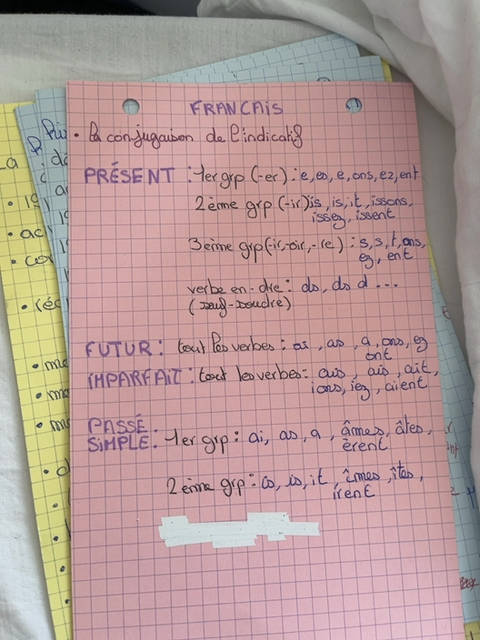 FRANCAIS
• la conjugaison de l'indicatif
PRÉSENT : 1er grp (-er) : e, es, e, ons, ez, ent
2ème grp (-ir) is, is, it, issons,
issez, issent
3ème grp (-ir, -oir, -re) : s, s, t, ons,
ez, ent
verbe en -dre : ds, ds d ...
(sauf -soudre)
FUTUR : tout les verbes : ai, as, a, ons, ez
ont
IMPARFAIT : tout les verbes : ais, ais, ait,
ions, iez, aient
PASSÉ
SIMPLE : 1er grp : ai, as, a, âmes, âtes,
èrent
2ème grp : is, is, it, îmes, îtes,
irent